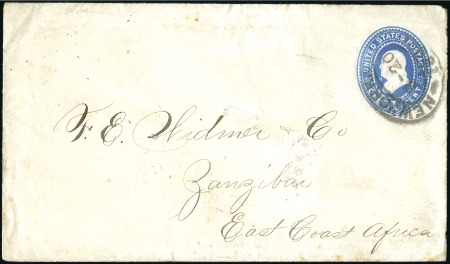 UNITED STATES POSTAGE
NEW
F. E. Widmer & Co
Zanzibar
East Coast Africa